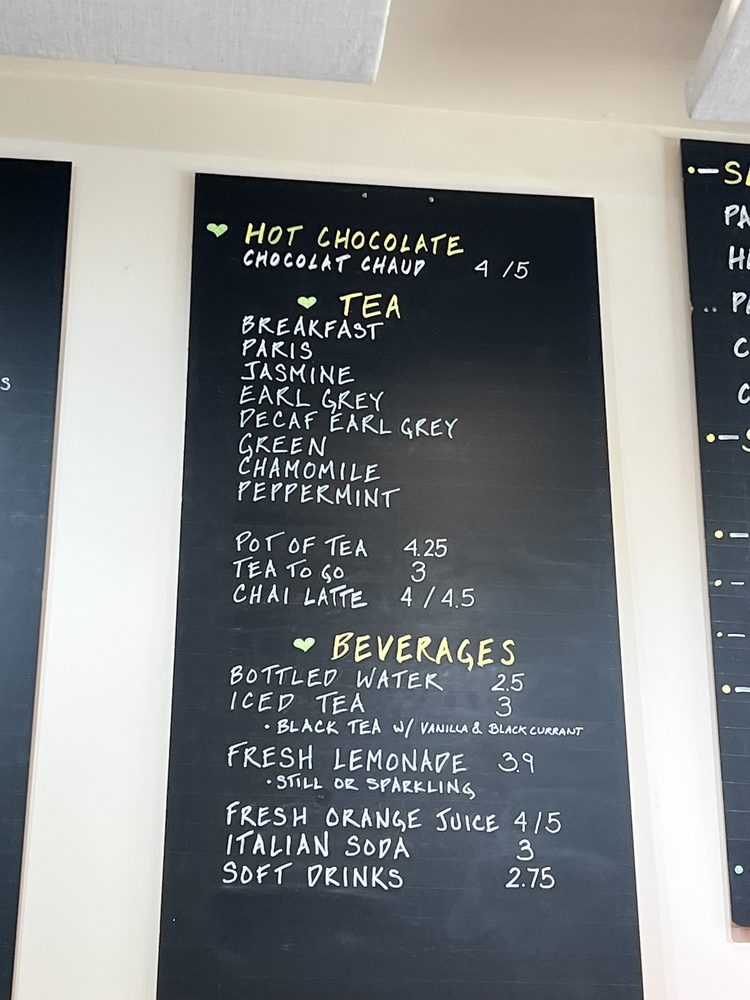 HOT CHOCOLATE
CHOCOLAT CHAUD 4 / 5
TEA
BREAKFAST
PARIS
JASMINE
EARL GREY
DECAF EARL GREY
GREEN
CHAMOMILE
PEPPERMINT
POT OF TEA 4.25
TEA TO GO 3
CHAI LATTE 4 / 4.5
BEVERAGES
BOTTLED WATER 2.5
ICED TEA 3
• BLACK TEA W/ VANILLA & BLACKCURRANT
FRESH LEMONADE 3.9
• STILL OR SPARKLING
FRESH ORANGE JUICE 4/5
ITALIAN SODA 3
SOFT DRINKS 2.75